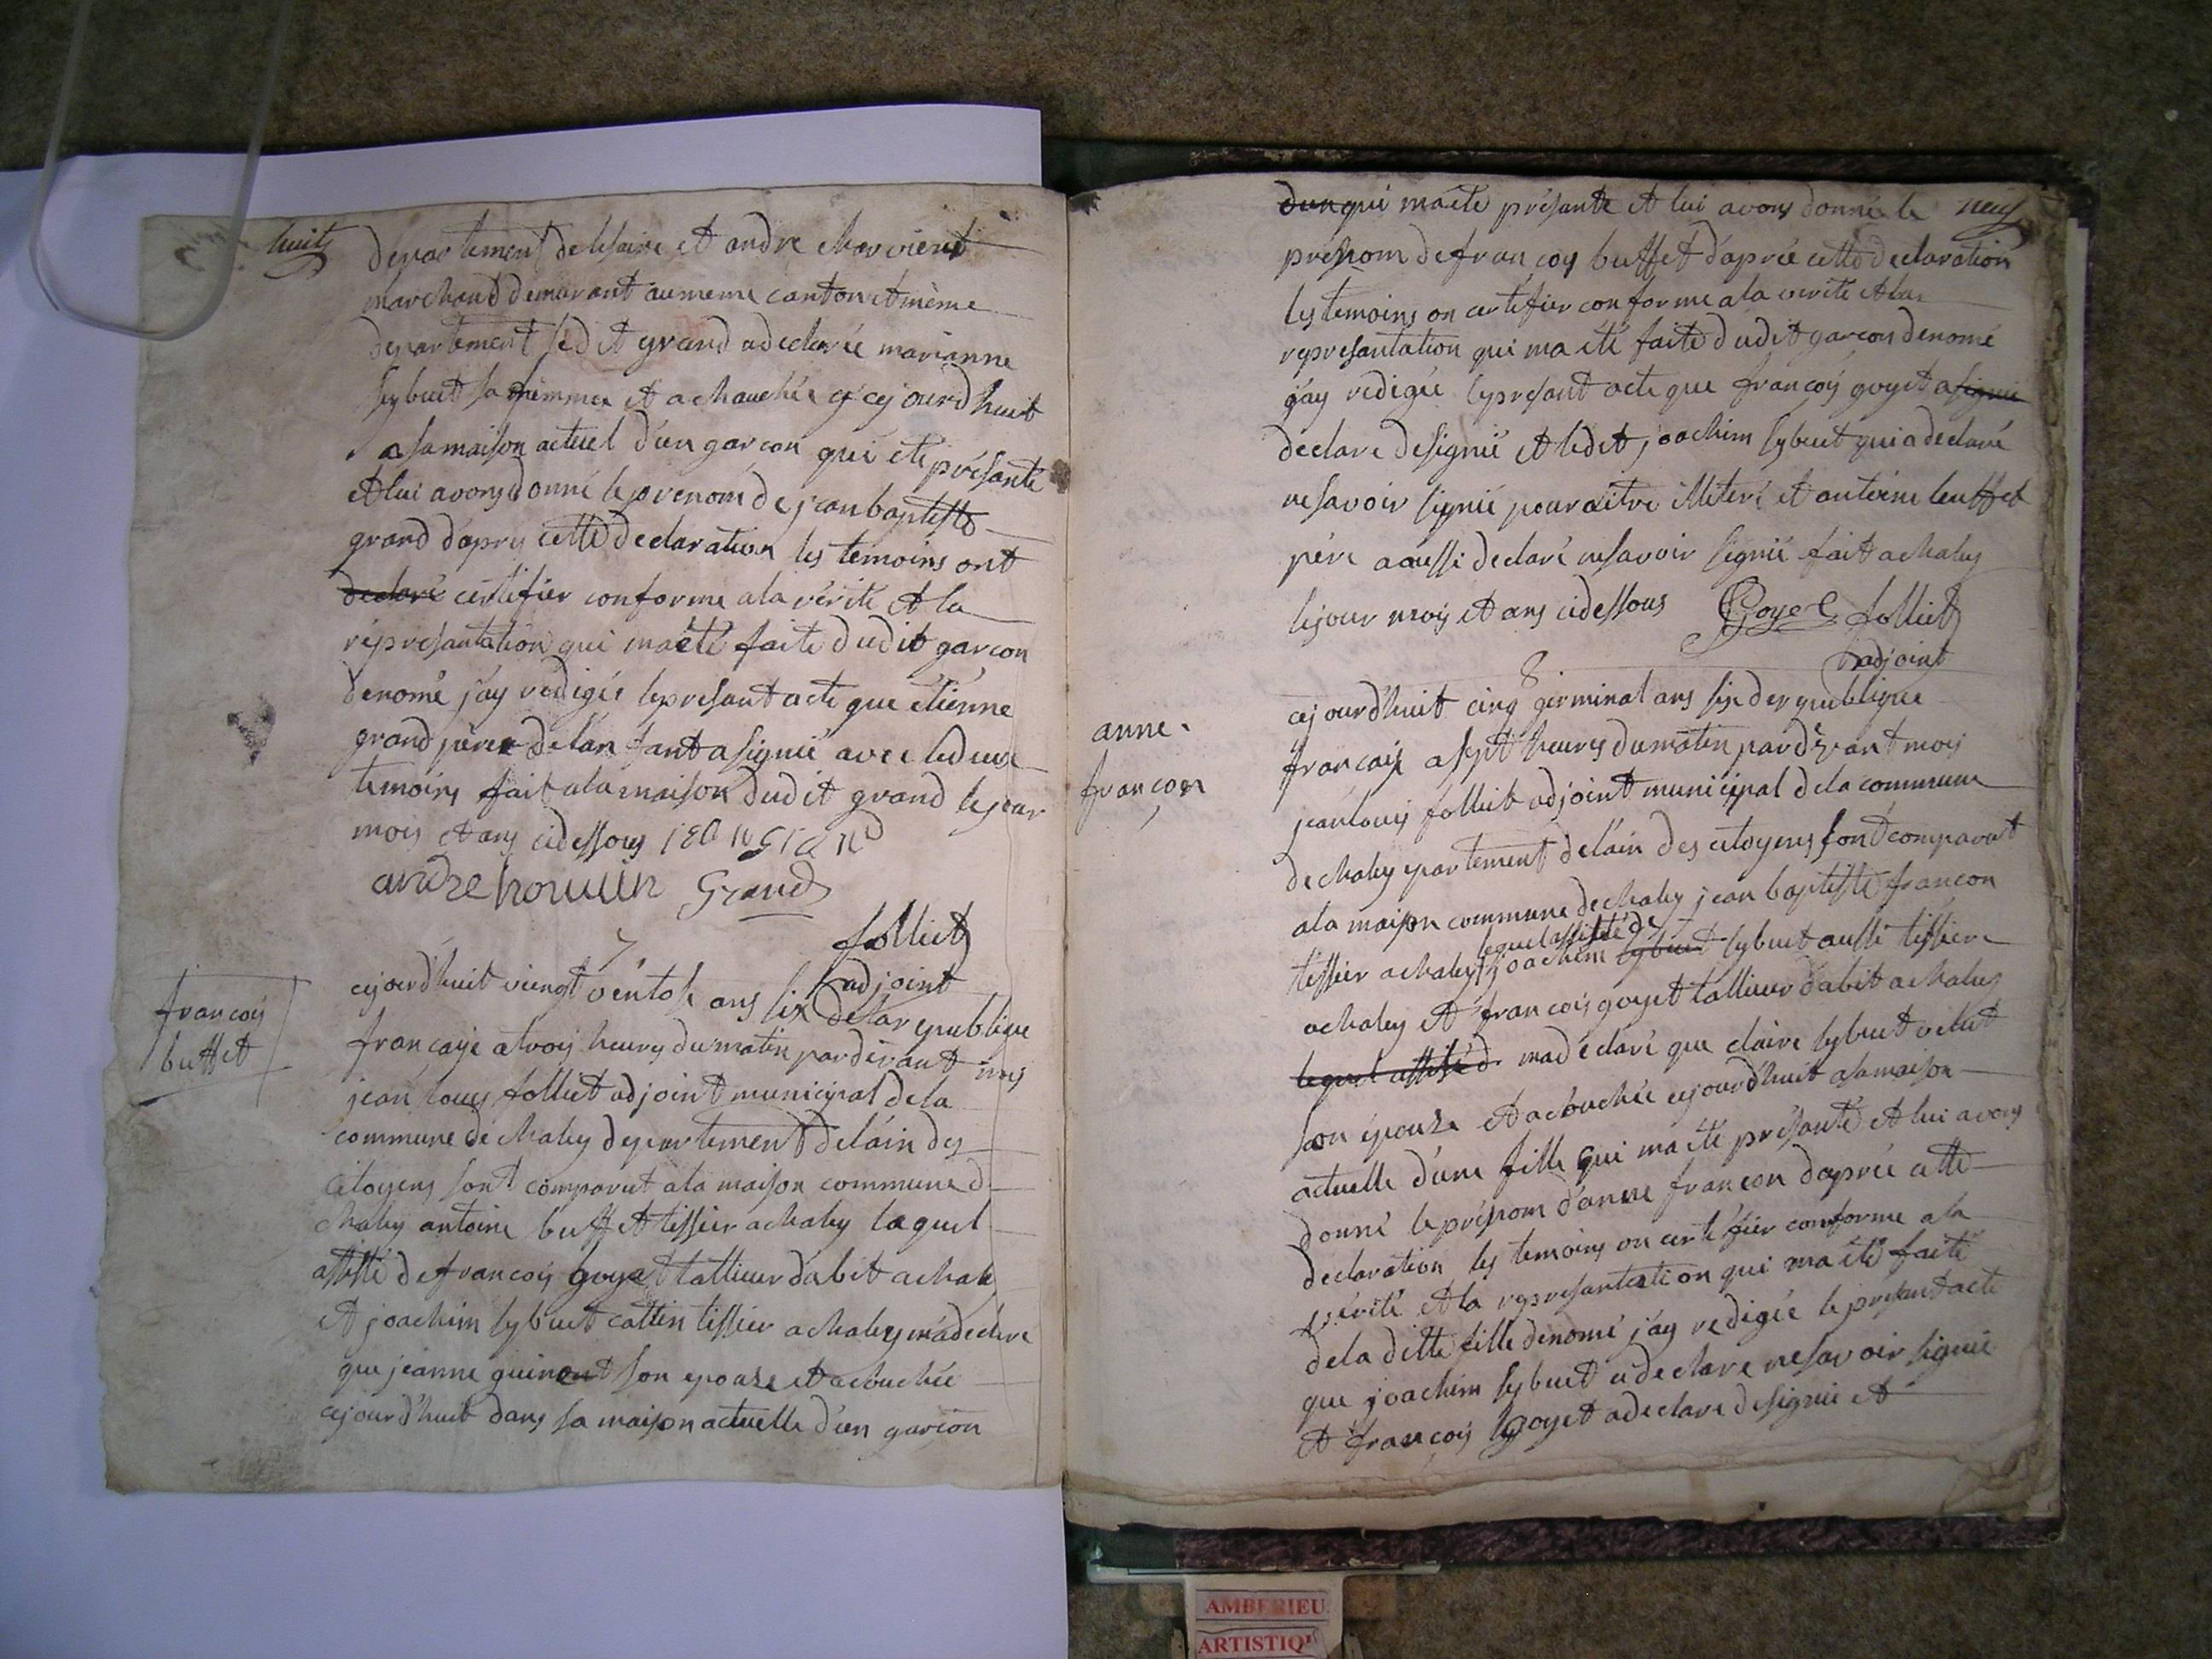 huit
departement de lisaire et andre charvient
marchand demurant au meme canton et mème
departement ledit grand a declarée marianne
sybuet sa femme et achauchée cejourdhuit
a sa maison actuel d'un garcon qui été présanté
et lui avons donné le prenom de jean baptiste
grand d'aprys cette declaration les temoins ont
declaré certifier conforme a la vérité et la
représantation qui ma été faite dudit garcon
denomé j'ay redigée le présant acte que étiénne
grand père de lanfant a signié avec led deux
temoins fait a la maison dudit grand le jour
mois et ans cidessous jEan Grand
andre Grand
folliet
adjoint
7
françois
buffet
cejourdhuit viengt véntose ans six de la republique
francaise a trois heures du matin pardevant moy
jean louis folliet adjoint municipal de la
commune de chaley departement de láin des
citoyens sont comparut a la maison commune d
chaley antoine buffet tissier a chaley laquel
assisté de francois goyet tallieur dabit a chaley
et joachim sybuet cattin tissier a chaley ma declaré
que jeanne guinet son epouze et acouchée
cejourdhuit dans sa maison actuelle d'un garcon
neuf
dun qui ma été présanté et lui avons donné le
prénom de francoy buffet d'aprée cette declaration
les temoins on certifier conforme a la verité et la
représantation qui ma été faite dudit garcon denomé
j'ay redigée le présant acte que françoy goyet a signié
declaré de signié et ledit joachim sybuet qui a declaré
ne savoir signié pour aitre illiteré et antoine buffet
père a aussi declaré ne savoir signié fait a chaley
le jour moy et ans cidessous Goyet folliet
adjoint
8
anne
françon
cejourdhuit cinq germinal ans six de republique
francaise a sept heures du matin pardevant moy
jean louis folliet adjoint municipal de la commune
de chaley epartement de láin des citoyens sont comparut
a la maison commune de chaley jean baptiste francon
lequel assisté de
tissier a chaley joachim sybuet sybuet aussi tissier
a chaley et françois goyet tallieur dabit a chaley
lequel assisté d ma declaré que claire sybuet velut
son épouze et acouchée cejourdhuit a sa maison
actuelle d'une fille qui ma été présanté et lui avons
donné le prénom d'anne françon d'aprée cette
declaration les temoins on certifier conforme a la
vérité et la représantation qui ma été faite
de la ditte fille denomé j'ay redigée le présant acte
que joachim sybuet a declaré ne savoir signié
et françois goyet a declaré de signié et
AMBERIEU
ARTISTIQ